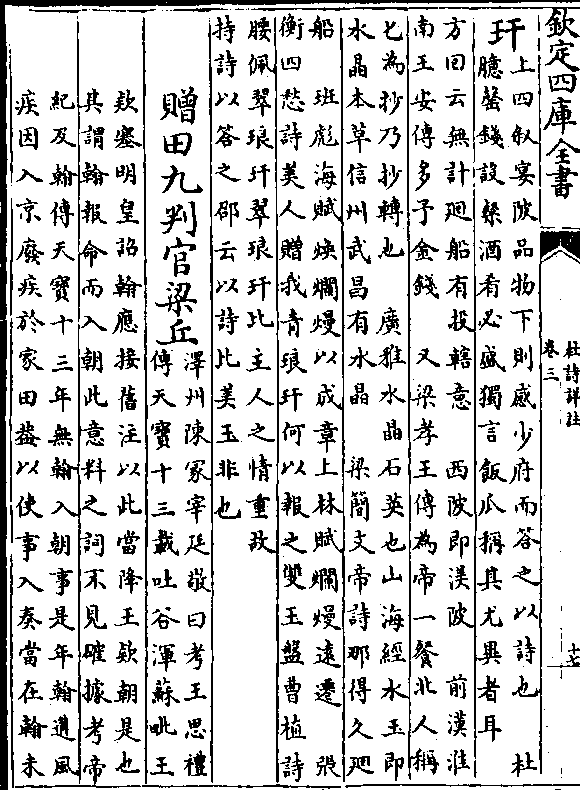 欽定四庫全書
杜詩詳注
卷三
十七
玕
上四叙宴陂品物下則感少府而答之以詩也　杜
臆罄錢設槩酒肴必盛獨言飯瓜稱其尤異者耳
方回云無計廻船有投轄意　西陂即渼陂　前漢淮
南王安傳多予金錢　又梁孝王傳為帝一餐北人稱
匕為抄乃抄轉也　廣雅水晶石英也山海經水玉即
水晶本草信州武昌有水晶　梁簡文帝詩那得久廻
船　班彪海賦煥爛熳以成章上林賦爛熳遠遷　張
衡四愁詩美人贈我青琅玕何以報之雙玉盤曹植詩
腰佩翠琅玕翠琅玕比主人之情重故
持詩以答之邵云以詩比美玉非也
贈田九判官梁丘
澤州陳冢宰廷敬曰考王思禮
傳天寳十三載吐谷渾蘇毗王
欵塞明皇詔翰應接舊注以此當降王欵朝是也
其謂翰報命而入朝此意料之詞不見確據考帝
紀及翰傳天寳十三年無翰入朝事是年翰遘風
疾因入京廢疾於家田葢以使事入奏當在翰未